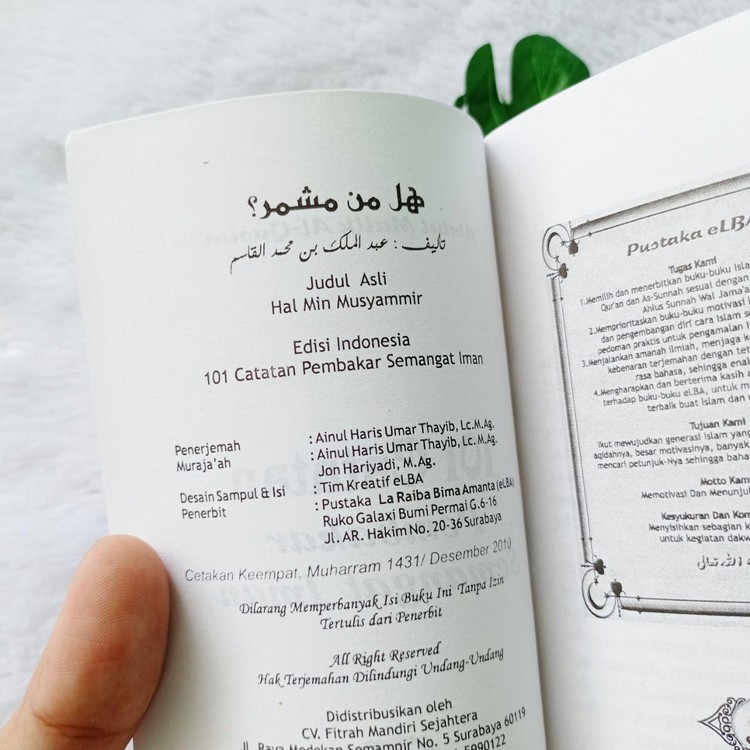 هل من مشمر؟
تأليف : عبد الملك بن محمد القاسم
Judul Asli
Hal Min Musyammir
Edisi Indonesia
101 Catatan Pembakar Semangat Iman
Penerjemah : Ainul Haris Umar Thayib, Lc.M.Ag.
Muraja'ah : Ainul Haris Umar Thayib, Lc, M.Ag.
Jon Hariyadi, M.Ag.
Desain Sampul & Isi : Tim Kreatif eLBA
Penerbit : Pustaka La Raiba Bima Amanta (eLBA)
Ruko Galaxi Bumi Permai G.6-16
Jl. AR. Hakim No. 20-36 Surabaya
Cetakan Keempat, Muharram 1431/ Desember 2010
Dilarang Memperbanyak Isi Buku Ini Tanpa Izin
Tertulis dari Penerbit
All Right Reserved
Hak Terjemahan Dilindungi Undang-Undang
Didistribusikan oleh
CV. Fitrah Mandiri Sejahtera
Jl. Raya Medokan Semampir No. 5 Surabaya 60119
5990122
Pustaka eLBA
Tugas Kami
1.Memilih dan menerbitkan buku-buku Isla
Qur'an dan As-Sunnah sesuai dengan
Ahlus Sunnah Wal Jama'a
2.Memprioritaskan buku-buku motivasi
dan pengembangan diri cara Islam s
pedoman praktis untuk pengamalan
3.Menjalankan amanah ilmiah, menjaga k
kebenaran terjemahan dengan tet
rasa bahasa, sehingga enak
4.Mengharapkan dan berterima kasih a
terhadap buku-buku eLBA, untuk m
terbaik buat Islam dan
Tujuan Kami
Ikut mewujudkan generasi Islam yang
aqidahnya, besar motivasinya, banyak
mencari petunjuk-Nya sehingga baha
Motto Kami
Memotivasi Dan Menunjuk
Kesyukuran Dan Kom
Menyisihkan sebagian k
untuk kegiatan dakw
الله تعالى